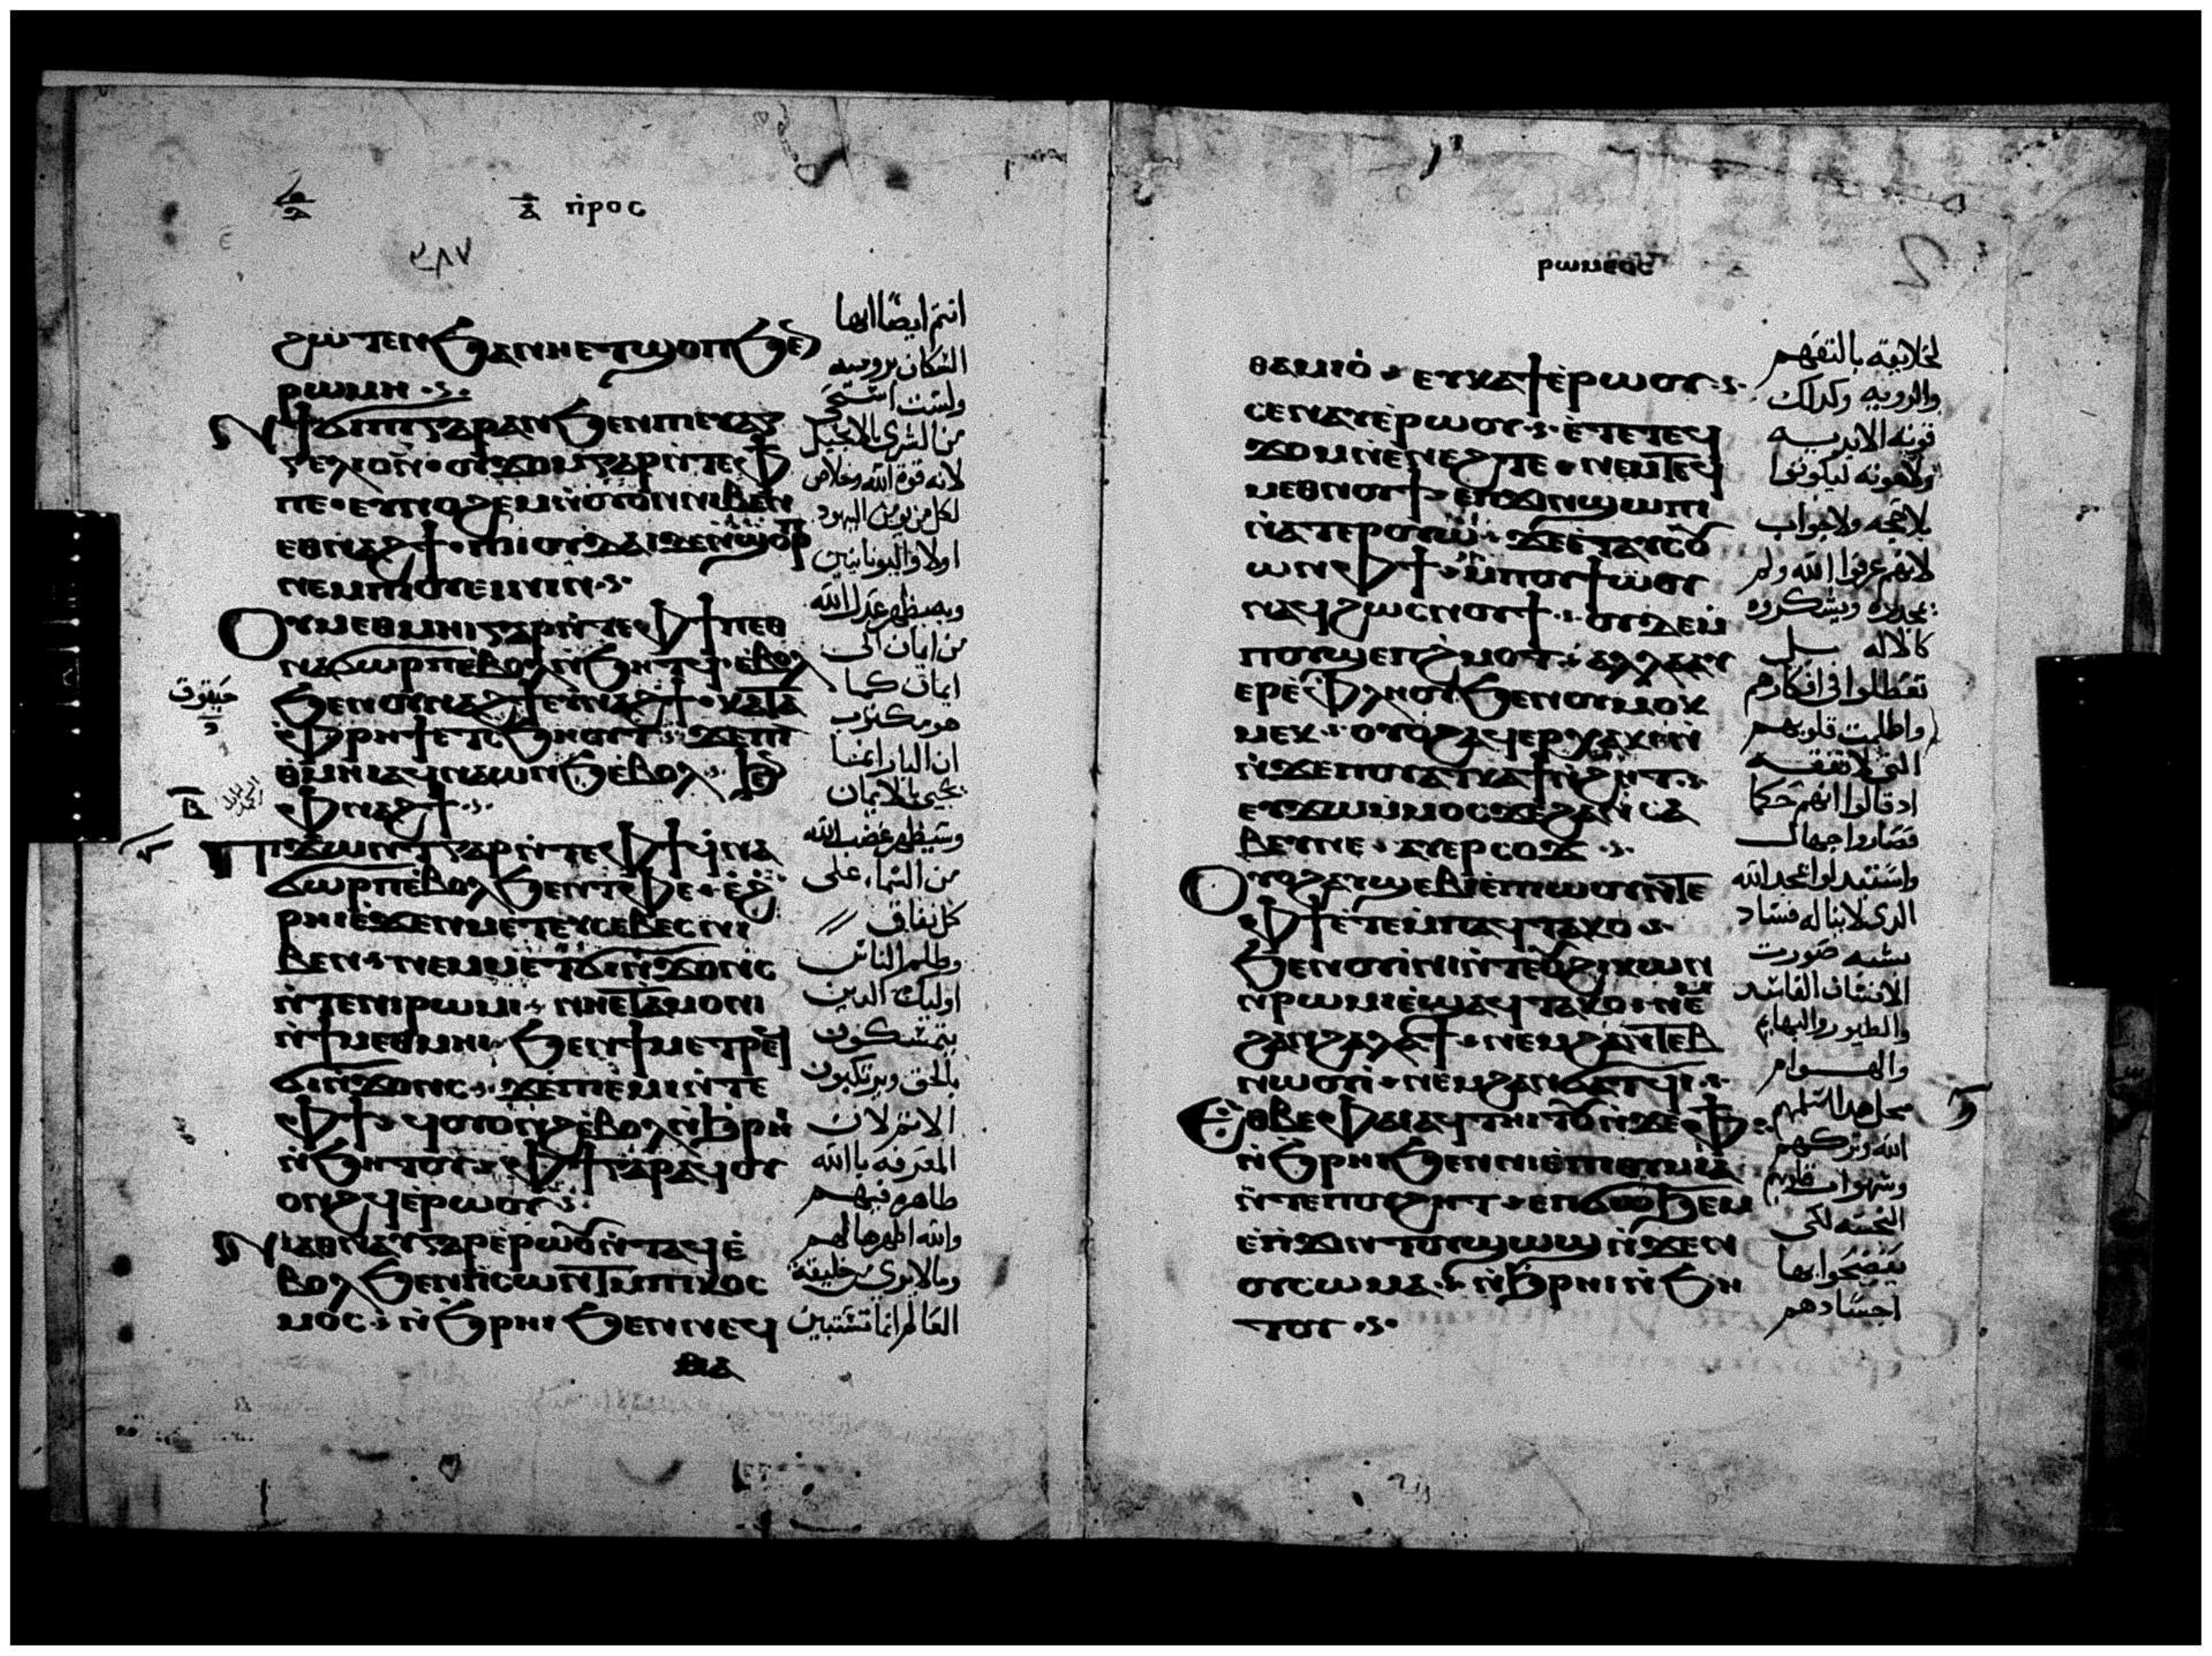 ⲡⲣⲟⲥ
٣٨٧
ϩⲱⲧⲉⲛ ϧⲁⲛⲛⲉⲧϣⲟⲡ ϧⲉⲛ
ⲣⲱⲙⲏ
ⲛϯϭⲓϣⲓⲡⲓ ⲅⲁⲣ ⲁⲛ ϧⲉⲛ ⲡⲓⲉⲩⲁⲅ
ⲅⲉⲗⲓⲟⲛ ⲟⲩϫⲟⲙ ⲅⲁⲣ ⲛⲧⲉ ⲫϯ
ⲡⲉ ⲉⲩⲛⲟϩⲉⲙ ⲛⲟⲩⲟⲛ ⲛⲓⲃⲉⲛ
ⲉⲑⲛⲁϩϯ ⲡⲓⲓⲟⲩⲇⲁⲓ ⲛϣⲟⲣⲡ
ⲛⲉⲙ ⲡⲓⲟⲩⲉⲓⲛⲓⲛ
ⲟⲩⲙⲉⲑⲙⲏⲓ ⲅⲁⲣ ⲛⲧⲉ ⲫϯ ⲡⲉⲑ
ⲛⲁϭⲱⲣⲡ ⲉⲃⲟⲗ ⲛϧⲏⲧϥ ⲉⲃⲟⲗ
ϧⲉⲛ ⲟⲩⲛⲁϩϯ ⲉⲩⲛⲁϩϯ ⲕⲁⲧⲁ
ⲫⲣⲏϯ ⲉⲧⲥϧⲏⲟⲩⲧ ϫⲉ ⲡⲓ
ⲑⲙⲏⲓ ⲁϥⲛⲁⲱⲛϧ ⲉⲃⲟⲗ ϧⲉⲛ
ⲫⲛⲁϩϯ
ⲡϫⲱⲛⲧ ⲅⲁⲣ ⲛⲧⲉ ⲫϯ ϥⲛⲁ
ϭⲱⲣⲡ ⲉⲃⲟⲗ ϧⲉⲛ ⲧⲫⲉ ⲉϩ
ⲣⲏⲓ ⲉϫⲉⲛ ⲙⲉⲧⲉⲩⲥⲉⲃⲉⲥ ⲛⲓ
ⲃⲉⲛ ⲛⲉⲙ ⲙⲉⲧϭⲓⲛϫⲟⲛⲥ
ⲛⲧⲉ ⲛⲓⲣⲱⲙⲓ ⲛⲏⲉⲧⲁⲙⲟⲛⲓ
ⲛϯⲙⲉⲑⲙⲏⲓ ϧⲉⲛ ϯⲙⲉⲧⲣⲉϥ
ϭⲓⲛϫⲟⲛⲥ ϫⲉ ⲡⲉⲙⲓ ⲛⲧⲉ
ⲫϯ ϥⲟⲩⲟⲛϩ ⲉⲃⲟⲗ ⲛϧⲣⲏⲓ
ⲛϧⲏⲧⲟⲩ ⲫϯ ⲅⲁⲣ ⲁϥⲟⲩ
ⲟⲛϩϥ ⲉⲣⲱⲟⲩ
ⲛⲓⲁⲑⲛⲁⲩ ⲅⲁⲣ ⲉⲣⲱⲟⲩ ⲛⲧⲁϥ ⲉ
ⲃⲟⲗ ϧⲉⲛ ⲡⲥⲱⲛⲧ ⲙⲡⲓⲕⲟⲥ
ⲙⲟⲥ ⲛϧⲣⲏⲓ ϧⲉⲛ ⲛⲉϥ
ⲑⲁ
انتم ايضا ايها
السكان برومية
ولست استحي
من البشرى بالانجيل
لانه قوة الله وخلاص
لكل من يومن اليهود
اولا واليونانيين
وبه يظهر عدل الله
من ايمان الى
ايمان كما
هو مكتوب
ان البار انما
يحيى بالايمان
وسيظهر غضب الله
من السماء على
كل نفاق
وظلم الناس
اوليك الدين
يتمسكون
بالحق ويرتكبون
الاثم لان
المعرفه بالله
ظاهره فيهم
والله اظهرها لهم
وما لا يرى خليقة
العالم انما تستبين
حبقوق
ⲣⲱⲙⲉⲟⲥ
ⲑⲁⲙⲓⲟ ⲉⲩⲕⲁϯ ⲉⲣⲱⲟⲩ
ⲥⲉⲛⲁⲩ ⲉⲣⲱⲟⲩ ⲉⲧⲉ ⲧⲉϥ
ϫⲟⲙ ⲛⲉⲛⲉϩ ⲧⲉ ⲛⲉⲙ ⲧⲉϥ
ⲙⲉⲑⲛⲟⲩϯ ⲉⲡϫⲓⲛϣⲱⲡⲓ
ⲛⲁⲧⲉⲣⲟⲩⲱ ϫⲉ ⲉⲧⲁⲩⲥⲟ
ⲱⲛ ⲫϯ ⲙⲡⲟⲩϯⲱⲟⲩ
ⲛⲁϥ ϩⲱⲥ ⲛⲟⲩϯ ⲟⲩⲇⲉ ⲙ
ⲡⲟⲩϣⲉⲡ ϩⲙⲟⲧ ⲁⲗⲗⲁ ⲁⲩ
ⲉⲣ ⲉⲫⲗⲏⲟⲩ ϧⲉⲛ ⲛⲟⲩⲙⲟⲕ
ⲙⲉⲕ ⲟⲩⲟϩ ⲁϥⲉⲣ ⲭⲁⲕⲓ ⲛ
ⲛϫⲉ ⲡⲟⲩⲁⲧⲕⲁϯ ⲛϩⲏⲧ
ⲉⲩϫⲱ ⲙⲙⲟⲥ ϫⲉ ϩⲁⲛⲥⲁ
ⲃⲉⲩ ⲛⲉ ⲁⲩⲉⲣⲥⲟϫ
ⲟⲩⲟϩ ⲁⲩϣⲉⲃⲓⲉ ⲡⲱⲟⲩ ⲛⲧⲉ
ⲫϯ ⲉⲧⲉ ⲙⲡⲁϥⲧⲁⲕⲟ
ϧⲉⲛ ⲟⲩⲓⲛⲓ ⲛⲧⲉ ⲟⲩϩⲓⲕⲱⲛ
ⲛⲣⲱⲙⲓ ⲉϣⲁϥⲧⲁⲕⲟ ⲛⲉⲙ
ϩⲁⲛϩⲁⲗⲁϯ ⲛⲉⲙ ϩⲁⲛⲧⲉⲃ
ⲛⲱⲟⲩⲓ ⲛⲉⲙ ϩⲁⲛϭⲁⲧϥⲓ
ⲉⲑⲃⲉ ⲫⲁⲓ ⲁϥⲧⲏⲓⲧⲟⲩ ⲛϫⲉ ⲫϯ
ⲛϧⲣⲏⲓ ϧⲉⲛ ⲛⲓⲉⲡⲓⲑⲩⲙⲓⲁ
ⲛⲧⲉ ⲡⲟⲩϩⲏⲧ ⲉⲡϭⲱϧⲉⲙ
ⲉⲡϫⲓⲛⲧⲟⲩϣⲱϣ ⲛϫⲉ ⲛ
ⲟⲩⲥⲱⲙⲁ ⲛϧⲣⲏⲓ ⲛϧⲏ
ⲧⲟⲩ
لخلايقه بالتفهم
والرويه وكدلك
قوته الابديه
ولاهوته ليكونوا
بلا حجه ولا جواب
لانهم عرفوا الله ولم
يمجدوه ويشكروه
كالاله بل
تعطلوا في افكارهم
واظلمت قلوبهم
التي لا تفقه
اد قالوا انهم حكما
فصاروا جهال
واستبدلوا مجد الله
الدي لا يناله فساد
بشبه صورت
الانسان الفاسد
والطيور والبهايم
والهوام
الله وتركهم
وشهوات قلوبهم
النجسه لكي
يفضحوا بها
اجسادهم